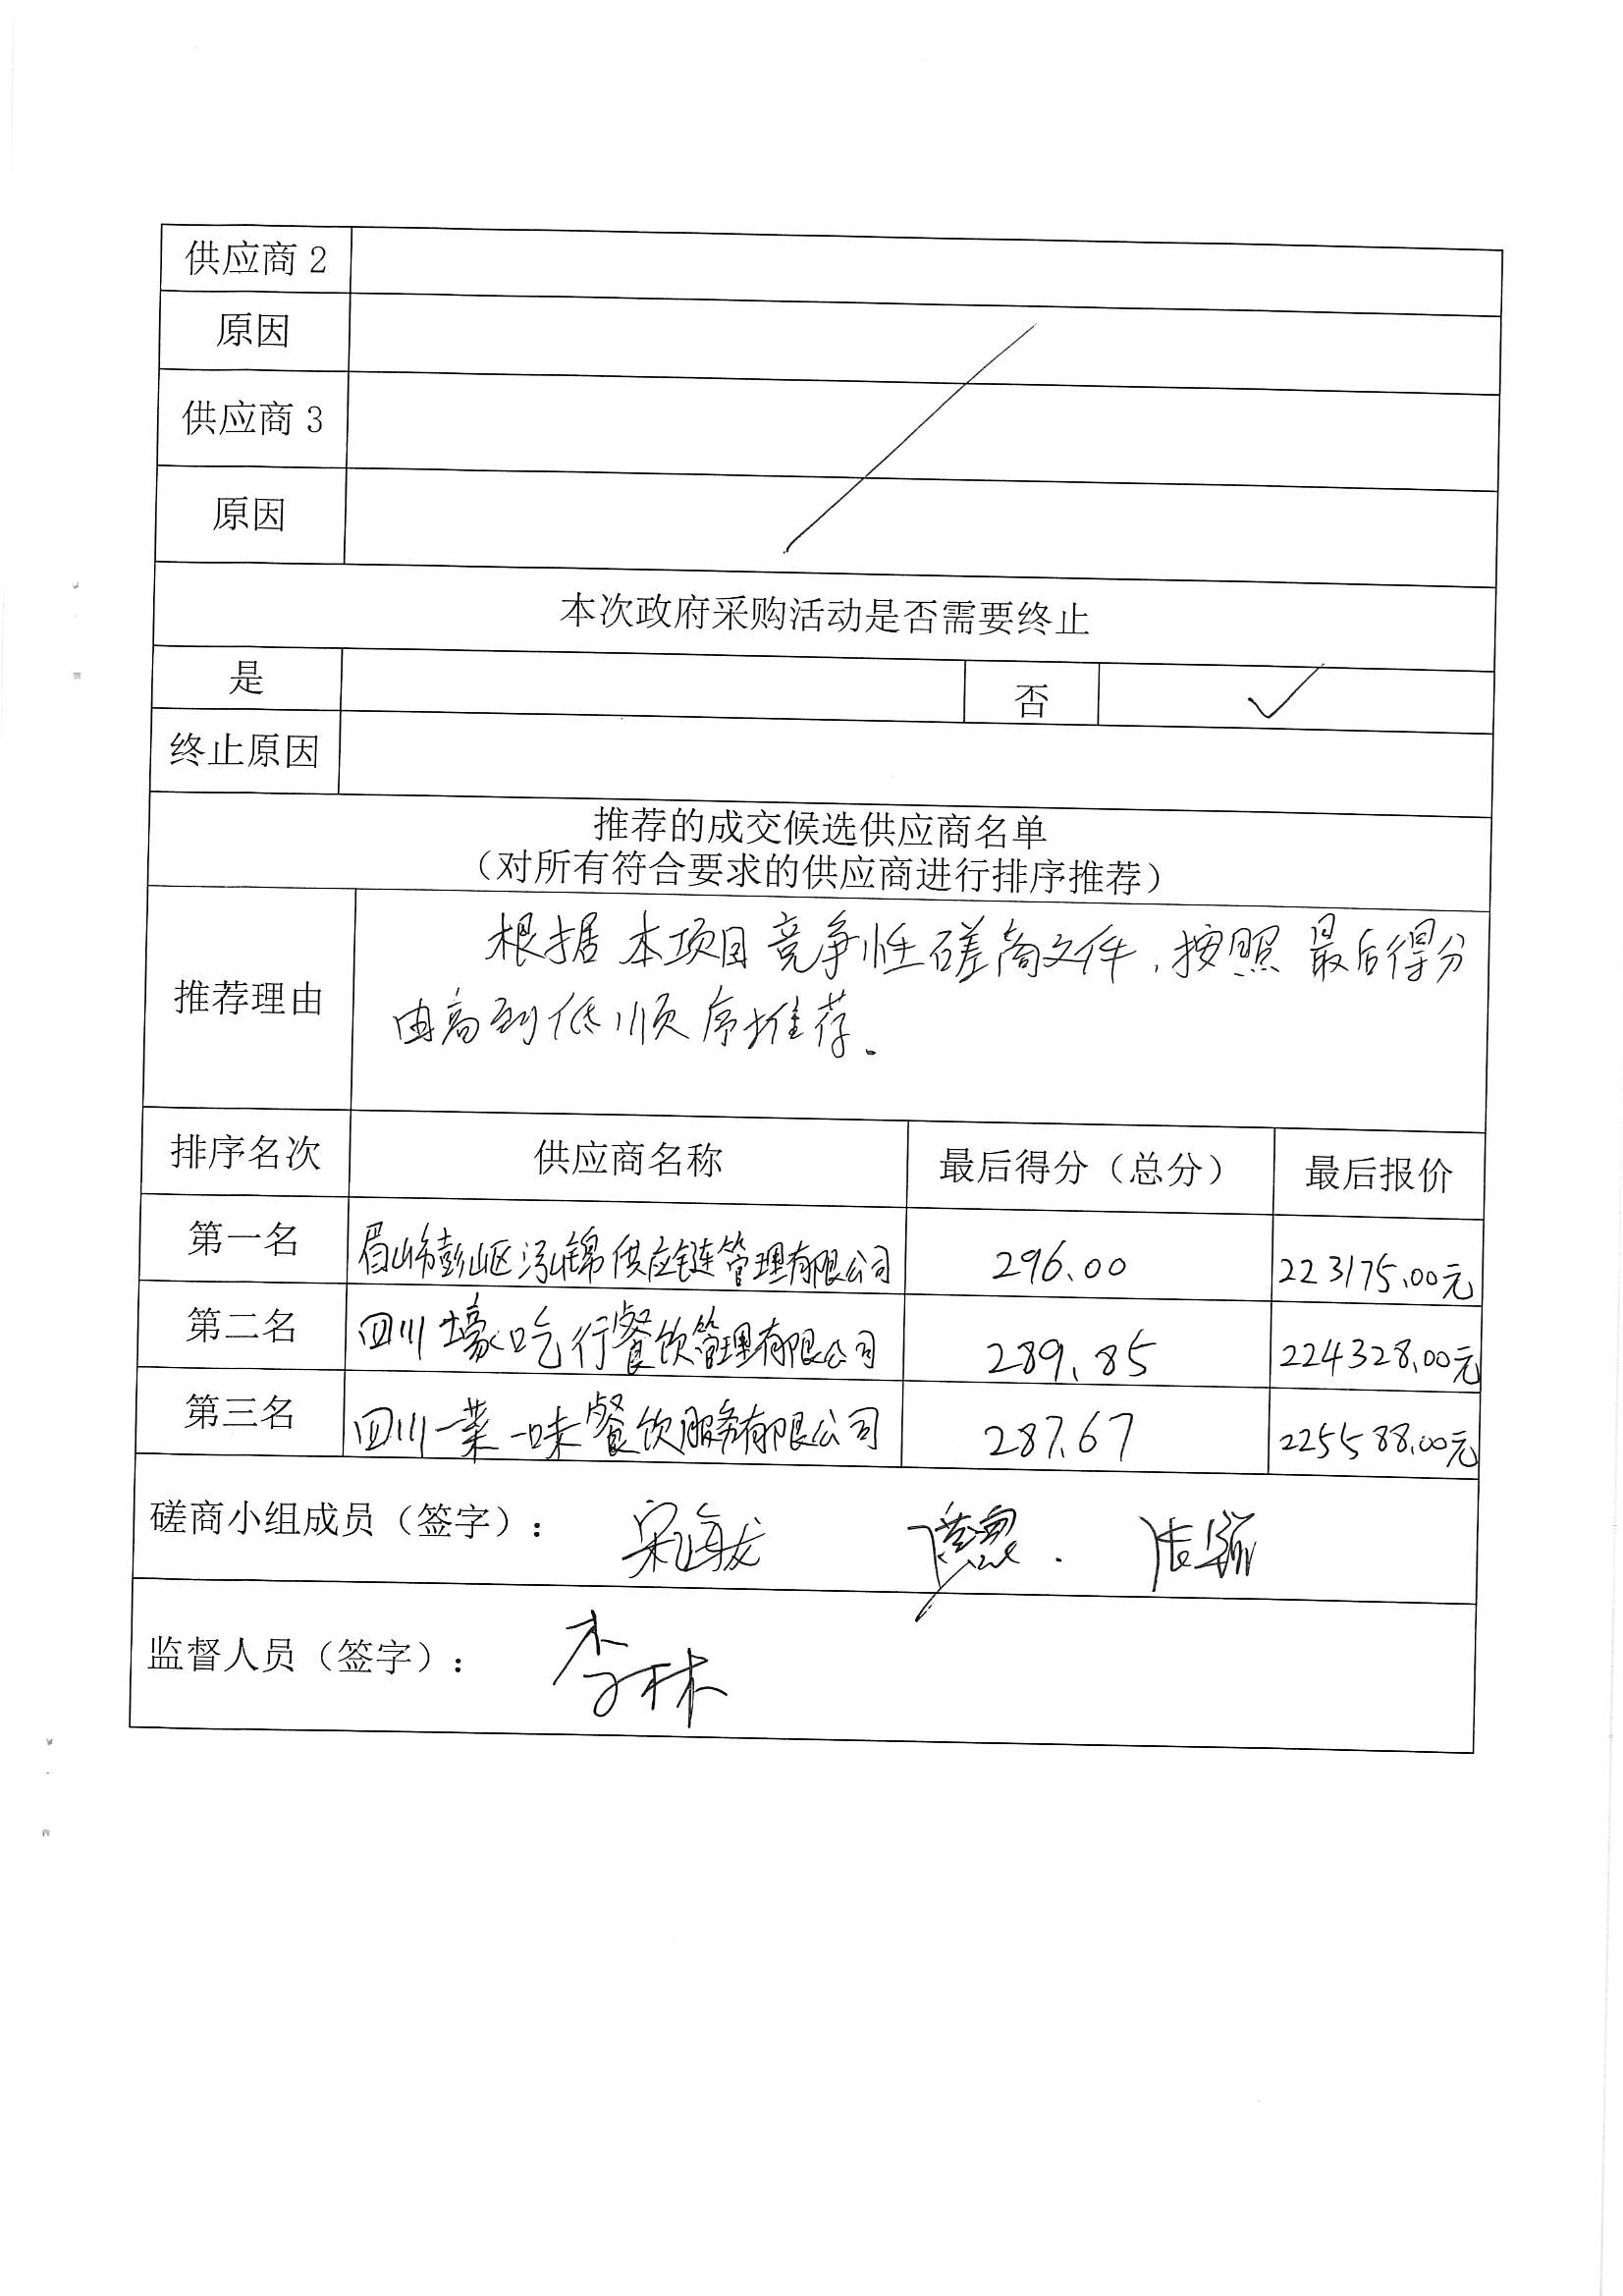 供应商2
原因
供应商3
原因
本次政府采购活动是否需要终止
是 否 ✓
终止原因
推荐的成交候选供应商名单
（对所有符合要求的供应商进行排序推荐）
推荐理由
根据本项目竞争性磋商文件，按照最后得分
由高到低顺序推荐。
排序名次 供应商名称 最后得分（总分） 最后报价
第一名 眉山市彭山区泓锦供应链管理有限公司 296.00 223175.00元
第二名 四川壕吃行餐饮管理有限公司 289.85 224328.00元
第三名 四川一菜一味餐饮服务有限公司 287.67 225588.00元
磋商小组成员（签字）：
监督人员（签字）： 李林